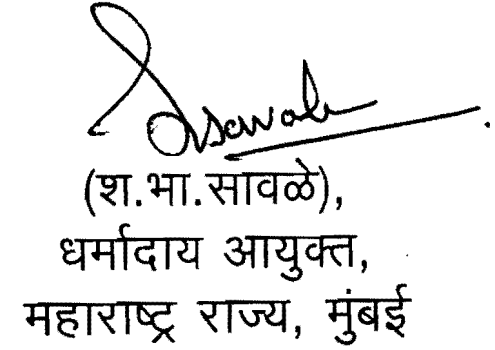 (श.भा.सावळे),
धर्मादाय आयुक्त,
महाराष्ट्र राज्य, मुंबई